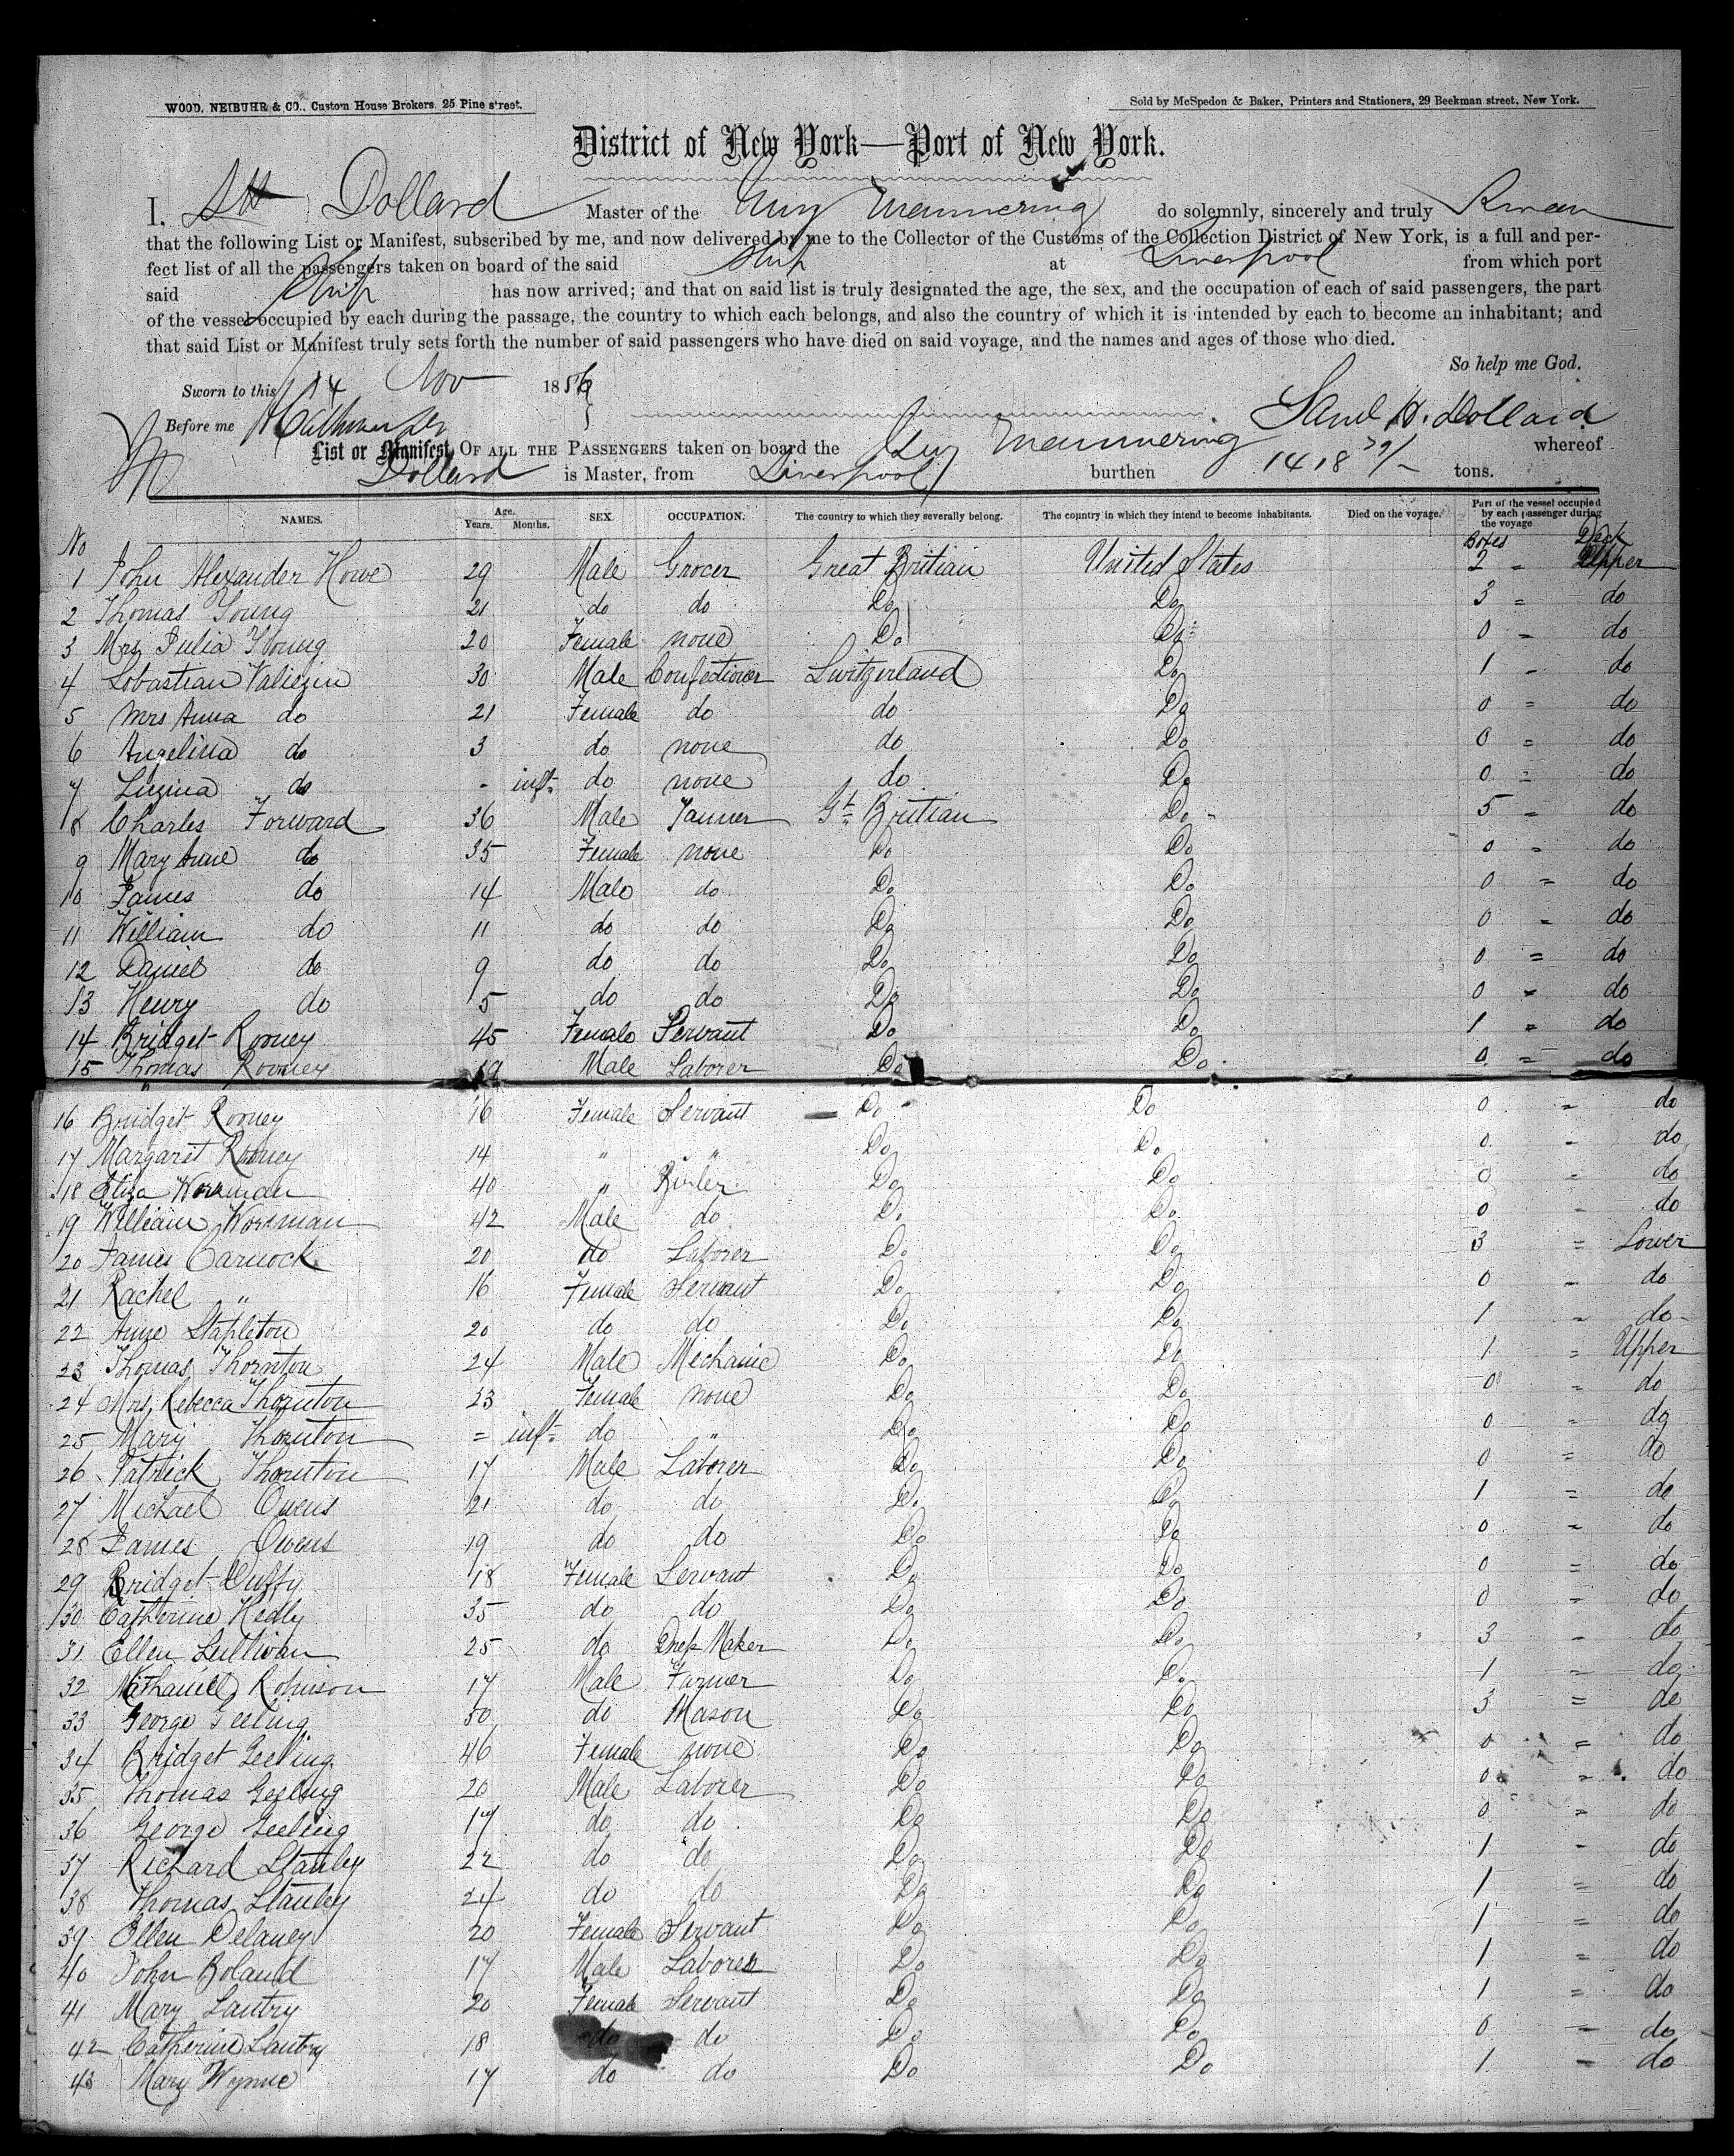 WOOD, NEIBUHR & CO., Custom House Brokers. 25 Pine street.
Sold by McSpedon & Baker, Printers and Stationers, 29 Beekman street, New York.
District of New York—Port of New York.
I, Dollard Master of the Guy Mannering do solemnly, sincerely and truly Swear
that the following List or Manifest, subscribed by me, and now delivered by me to the Collector of the Customs of the Collection District of New York, is a full and per-
fect list of all the passengers taken on board of the said Ship at Liverpool from which port
said Ship has now arrived; and that on said list is truly designated the age, the sex, and the occupation of each of said passengers, the part
of the vessel occupied by each during the passage, the country to which each belongs, and also the country of which it is intended by each to become an inhabitant; and
that said List or Manifest truly sets forth the number of said passengers who have died on said voyage, and the names and ages of those who died.
So help me God.
Sworn to this 14 Nov 185
Before me Saml H. Dollard
List or Manifest OF ALL THE PASSENGERS taken on board the Guy Mannering whereof
Dollard is Master, from Liverpool burthen 1418 tons.
NAMES. Age. Years. Months. SEX. OCCUPATION. The country to which they severally belong. The country in which they intend to become inhabitants. Died on the voyage. Part of the vessel occupied by each passenger during the voyage
No Boxes Deck
1 John Alexander Howe 29 Male Grocer Great Britian United States 2 " Upper
2 Thomas Young 21 do do Do Do 3 = do
3 Mrs Julia Young 20 Female none Do Do 0 - do
4 Sobastian 30 Male Confectioner Switzerland Do 1 - do
5 Mrs Anna do 21 Female do do Do 0 = do
6 Angelina do 3 do none do Do 0 = do
7 do - inft do none do Do 0 = do
8 Charles Forward 36 Male Tanner Gt Britian Do 5 = do
9 Mary Anne do 35 Female none Do Do 0 = do
10 James do 14 Male do Do Do 0 = do
11 William do 11 do do Do Do 0 = do
12 Daniel do 9 do do Do Do 0 = do
13 Henry do 5 do do Do Do 0 = do
14 Bridget Rooney 45 Female Servant Do Do 1 = do
15 Thomas Rooney 19 Male Laborer Do Do 0 = do
16 Bridget Rooney 16 Female Servant Do Do 0 = do
17 Margaret Rooney 14 " " Do Do 0 - do
18 Eliza 40 " Do Do 0 - do
19 William Workman 42 Male do Do Do 0 - do
20 James Carnock 20 do Laborer Do Do 3 = Lower
21 Rachel " 16 Female Servant Do Do 0 - do
22 Anne Stapleton 20 do do Do Do 1 - do
23 Thomas Thornton 24 Male Mechanic Do Do 1 = Upper
24 Mrs Rebecca Thornton 23 Female none Do Do 0 = do
25 Mary Thornton = inft do " Do Do 0 = do
26 Patrick Thornton 17 Male Laborer Do Do 0 = do
27 Michael Owens 21 do do Do Do 1 = do
28 James Owens 19 do do Do Do 0 = do
29 Bridget Duffy 18 Female Servant Do Do 0 = do
30 Catherine Hedly 35 do do Do Do 0 = do
31 Ellen Sullivan 25 do Dress Maker Do Do 3 - do
32 Nathaniel Robinson 17 Male Farmer Do Do 1 = do
33 George Geeling 50 do Mason Do Do 3 = do
34 Bridget Geeling 46 Female none Do Do 0 = do
35 Thomas Geeling 20 Male Laborer Do Do 0 = do
36 George Geeling 17 do do Do Do 0 = do
37 Richard Stanley 22 do do Do Do 1 - do
38 Thomas Stanley 24 do do Do Do 1 = do
39 Ellen Delaney 20 Female Servant Do Do 1 = do
40 John Boland 17 Male Laborer Do Do 1 = do
41 Mary Lantry 20 Female Servant Do Do 1 = do
42 Catherine Lantry 18 do do Do Do 0 - do
43 Mary Wynne 17 do do Do Do 1 - do